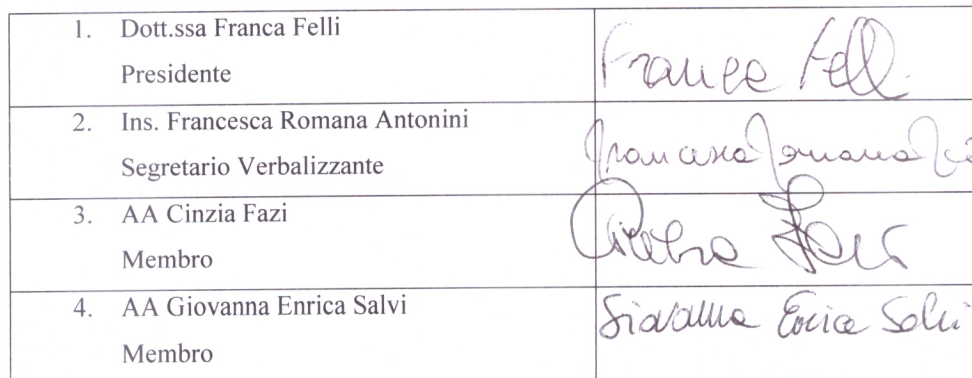 1. Dott.ssa Franca Felli
Presidente
Franca Felli
2. Ins. Francesca Romana Antonini
Segretario Verbalizzante
Francesca Romana
3. AA Cinzia Fazi
Membro
Cinzia Fazi
4. AA Giovanna Enrica Salvi
Membro
Giovanna Enrica Salvi